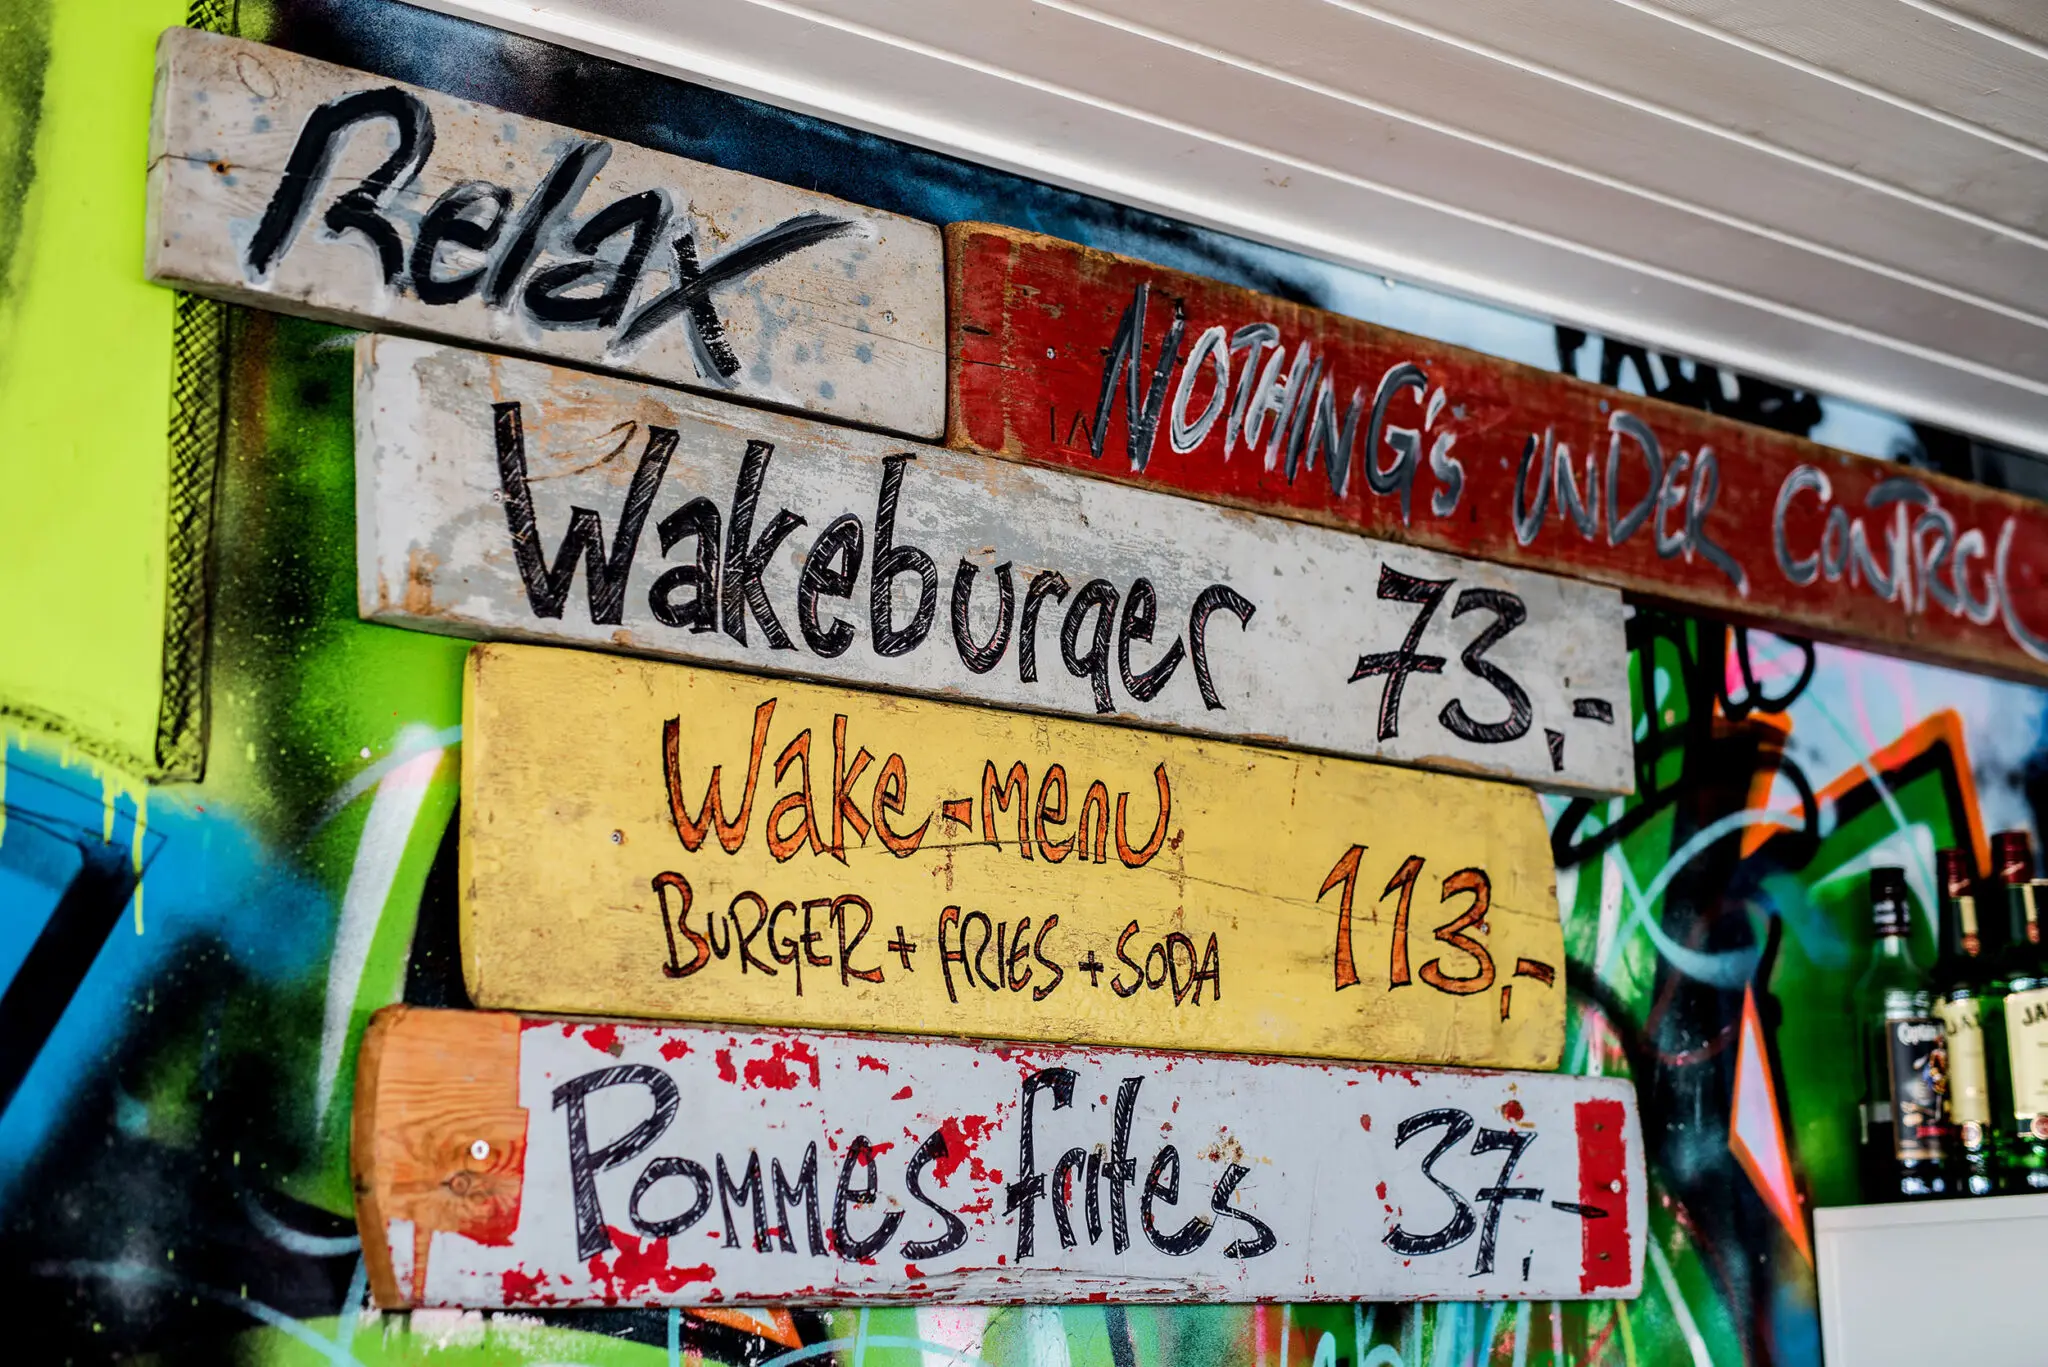 Relax
NOTHING's UNDER CONTROL
Wakeburger 73,-
Wake-menu
BURGER + FRIES + SODA 113,-
Pommes frites 37,-